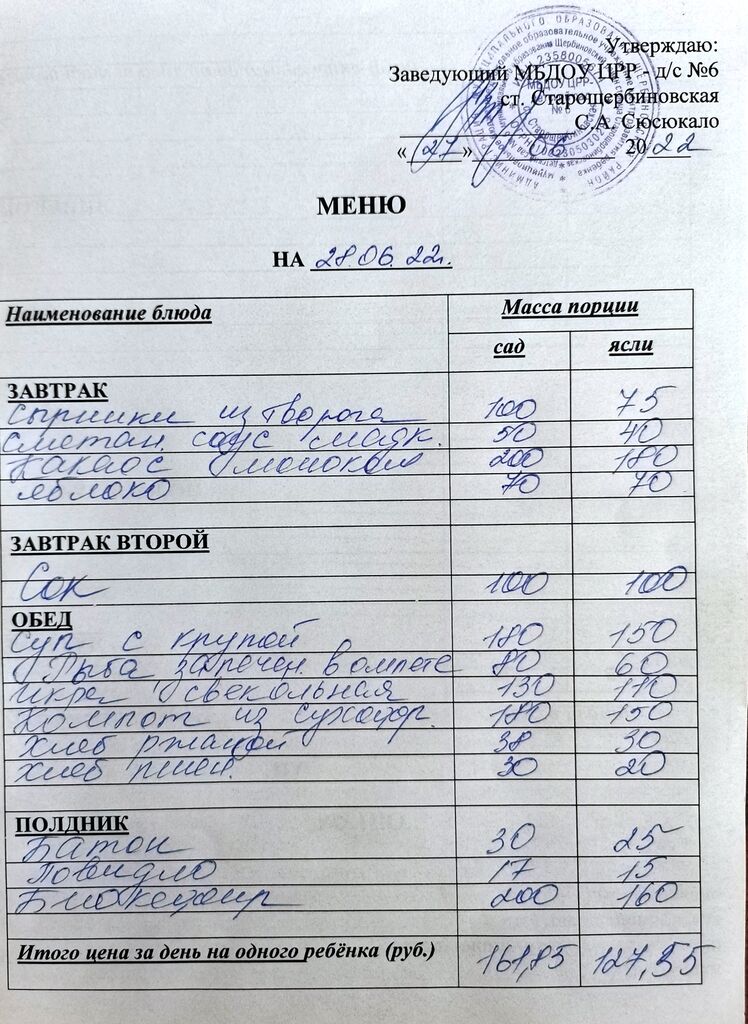 Утверждаю:
Заведующий МБДОУ ЦРР - д/с №6
ст. Старощербиновская
С.А. Сюсюкало
« 27 » 06 20 22
МЕНЮ
НА 28.06.22г.
Наименование блюда Масса порции
сад ясли
ЗАВТРАК
Сырники из творога 100 75
Сметан. соус сладк. 50 40
Какао с молоком 200 180
Яблоко 70 70
ЗАВТРАК ВТОРОЙ
Сок 100 100
ОБЕД
Суп с крупой 180 150
Рыба запечен. в омлете 80 60
Икра свекольная 130 110
Компот из сухофр. 180 150
Хлеб ржаной 38 30
Хлеб пшен. 30 20
ПОЛДНИК
Батон 30 25
Повидло 17 15
Биокефир 200 160
Итого цена за день на одного ребёнка (руб.) 161,85 127,55